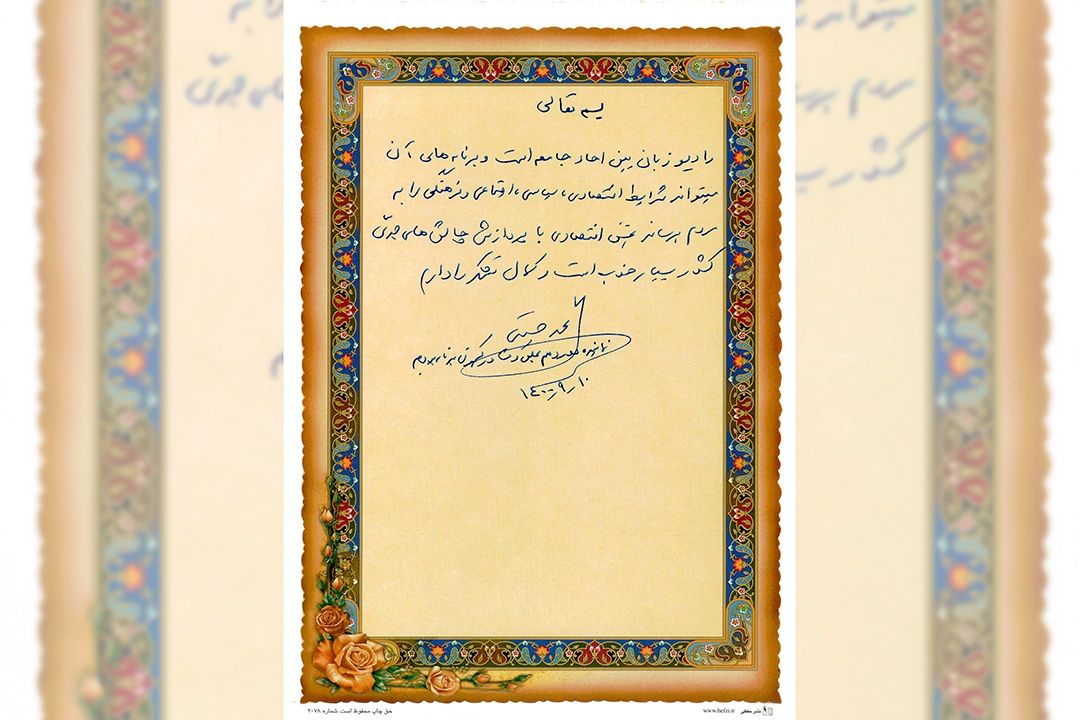 بسمه تعالی
رادیو زبان بین احاد جامعه است و برنامه‌های آن
میتواند شرایط اقتصادی، سیاسی، اجتماعی و فرهنگی را به
مردم برساند بخش اقتصادی با پردازش چالش‌های جدی
کشور بسیار خوب است و کمال تشکر را دارم
محمد حسینی
نماینده مردم تفرش
۱۴۰۰/۹/۱۰
حق چاپ محفوظ است. شماره ۲۰۷۸
www.hefzi.ir